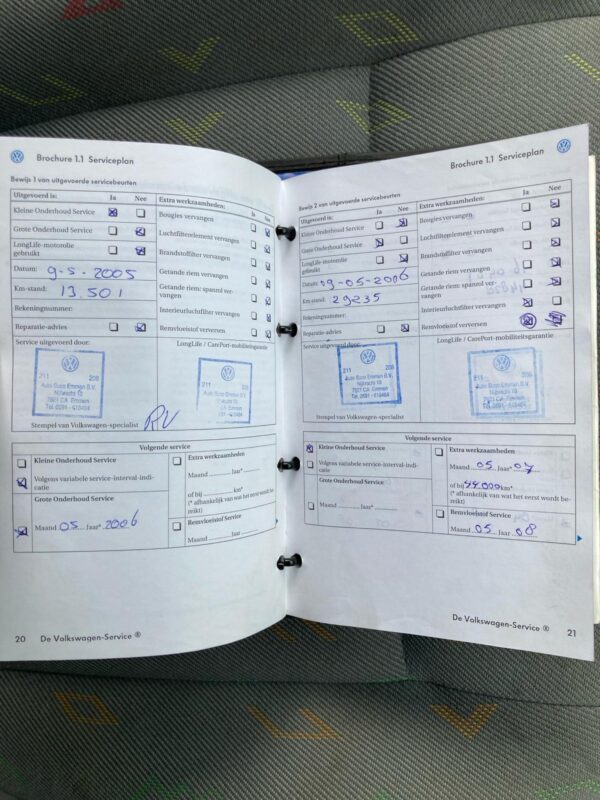 Brochure 1.1 Serviceplan
Bewijs 1 van uitgevoerde servicebeurten
Uitgevoerd is: Ja Nee
Kleine Onderhoud Service
Grote Onderhoud Service
LongLife-motorolie
gebruikt
Datum: 9-5-2005
Km-stand: 13.501
Rekeningnummer:
Reparatie-advies
Extra werkzaamheden: Ja Nee
Bougies vervangen
Luchtfilterelement vervangen
Brandstoffilter vervangen
Getande riem vervangen
Getande riem: spanrol ver-
vangen
Interieurluchtfilter vervangen
Remvloeistof verversen
Service uitgevoerd door:
LongLife / CarePort-mobiliteitsgarantie
211 206
Auto Buro Emmen B.V.
7821 CA Emmen
Stempel van Volkswagen-specialist
Volgende service
Kleine Onderhoud Service
Volgens variabele service-interval-indi-
catie
Grote Onderhoud Service
Maand 05 Jaar* 2006
Extra werkzaamheden
Maand Jaar*
of bij km*
(* afhankelijk van wat het eerst wordt be-
reikt)
Remvloeistof Service
Maand Jaar
20 De Volkswagen-Service ®
Brochure 1.1 Serviceplan
Bewijs 2 van uitgevoerde servicebeurten
Uitgevoerd is: Ja Nee
Kleine Onderhoud Service
Grote Onderhoud Service
LongLife-motorolie
gebruikt
Datum: 09-05-2006
Km-stand: 29235
Rekeningnummer:
Reparatie-advies
Extra werkzaamheden: Ja Nee
Bougies vervangen
Luchtfilterelement vervangen
Brandstoffilter vervangen
Getande riem vervangen
Getande riem: spanrol ver-
vangen
Interieurluchtfilter vervangen
Remvloeistof verversen
Service uitgevoerd door:
LongLife / CarePort-mobiliteitsgarantie
211 206
Auto Buro Emmen B.V.
Stempel van Volkswagen-specialist
Volgende service
Kleine Onderhoud Service
Volgens variabele service-interval-indi-
catie
Grote Onderhoud Service
Maand Jaar*
Extra werkzaamheden
Maand 05 Jaar 07
of bij 44.000 km*
(* afhankelijk van wat het eerst wordt be-
reikt)
Remvloeistof Service
Maand 05 Jaar 08
De Volkswagen-Service ® 21